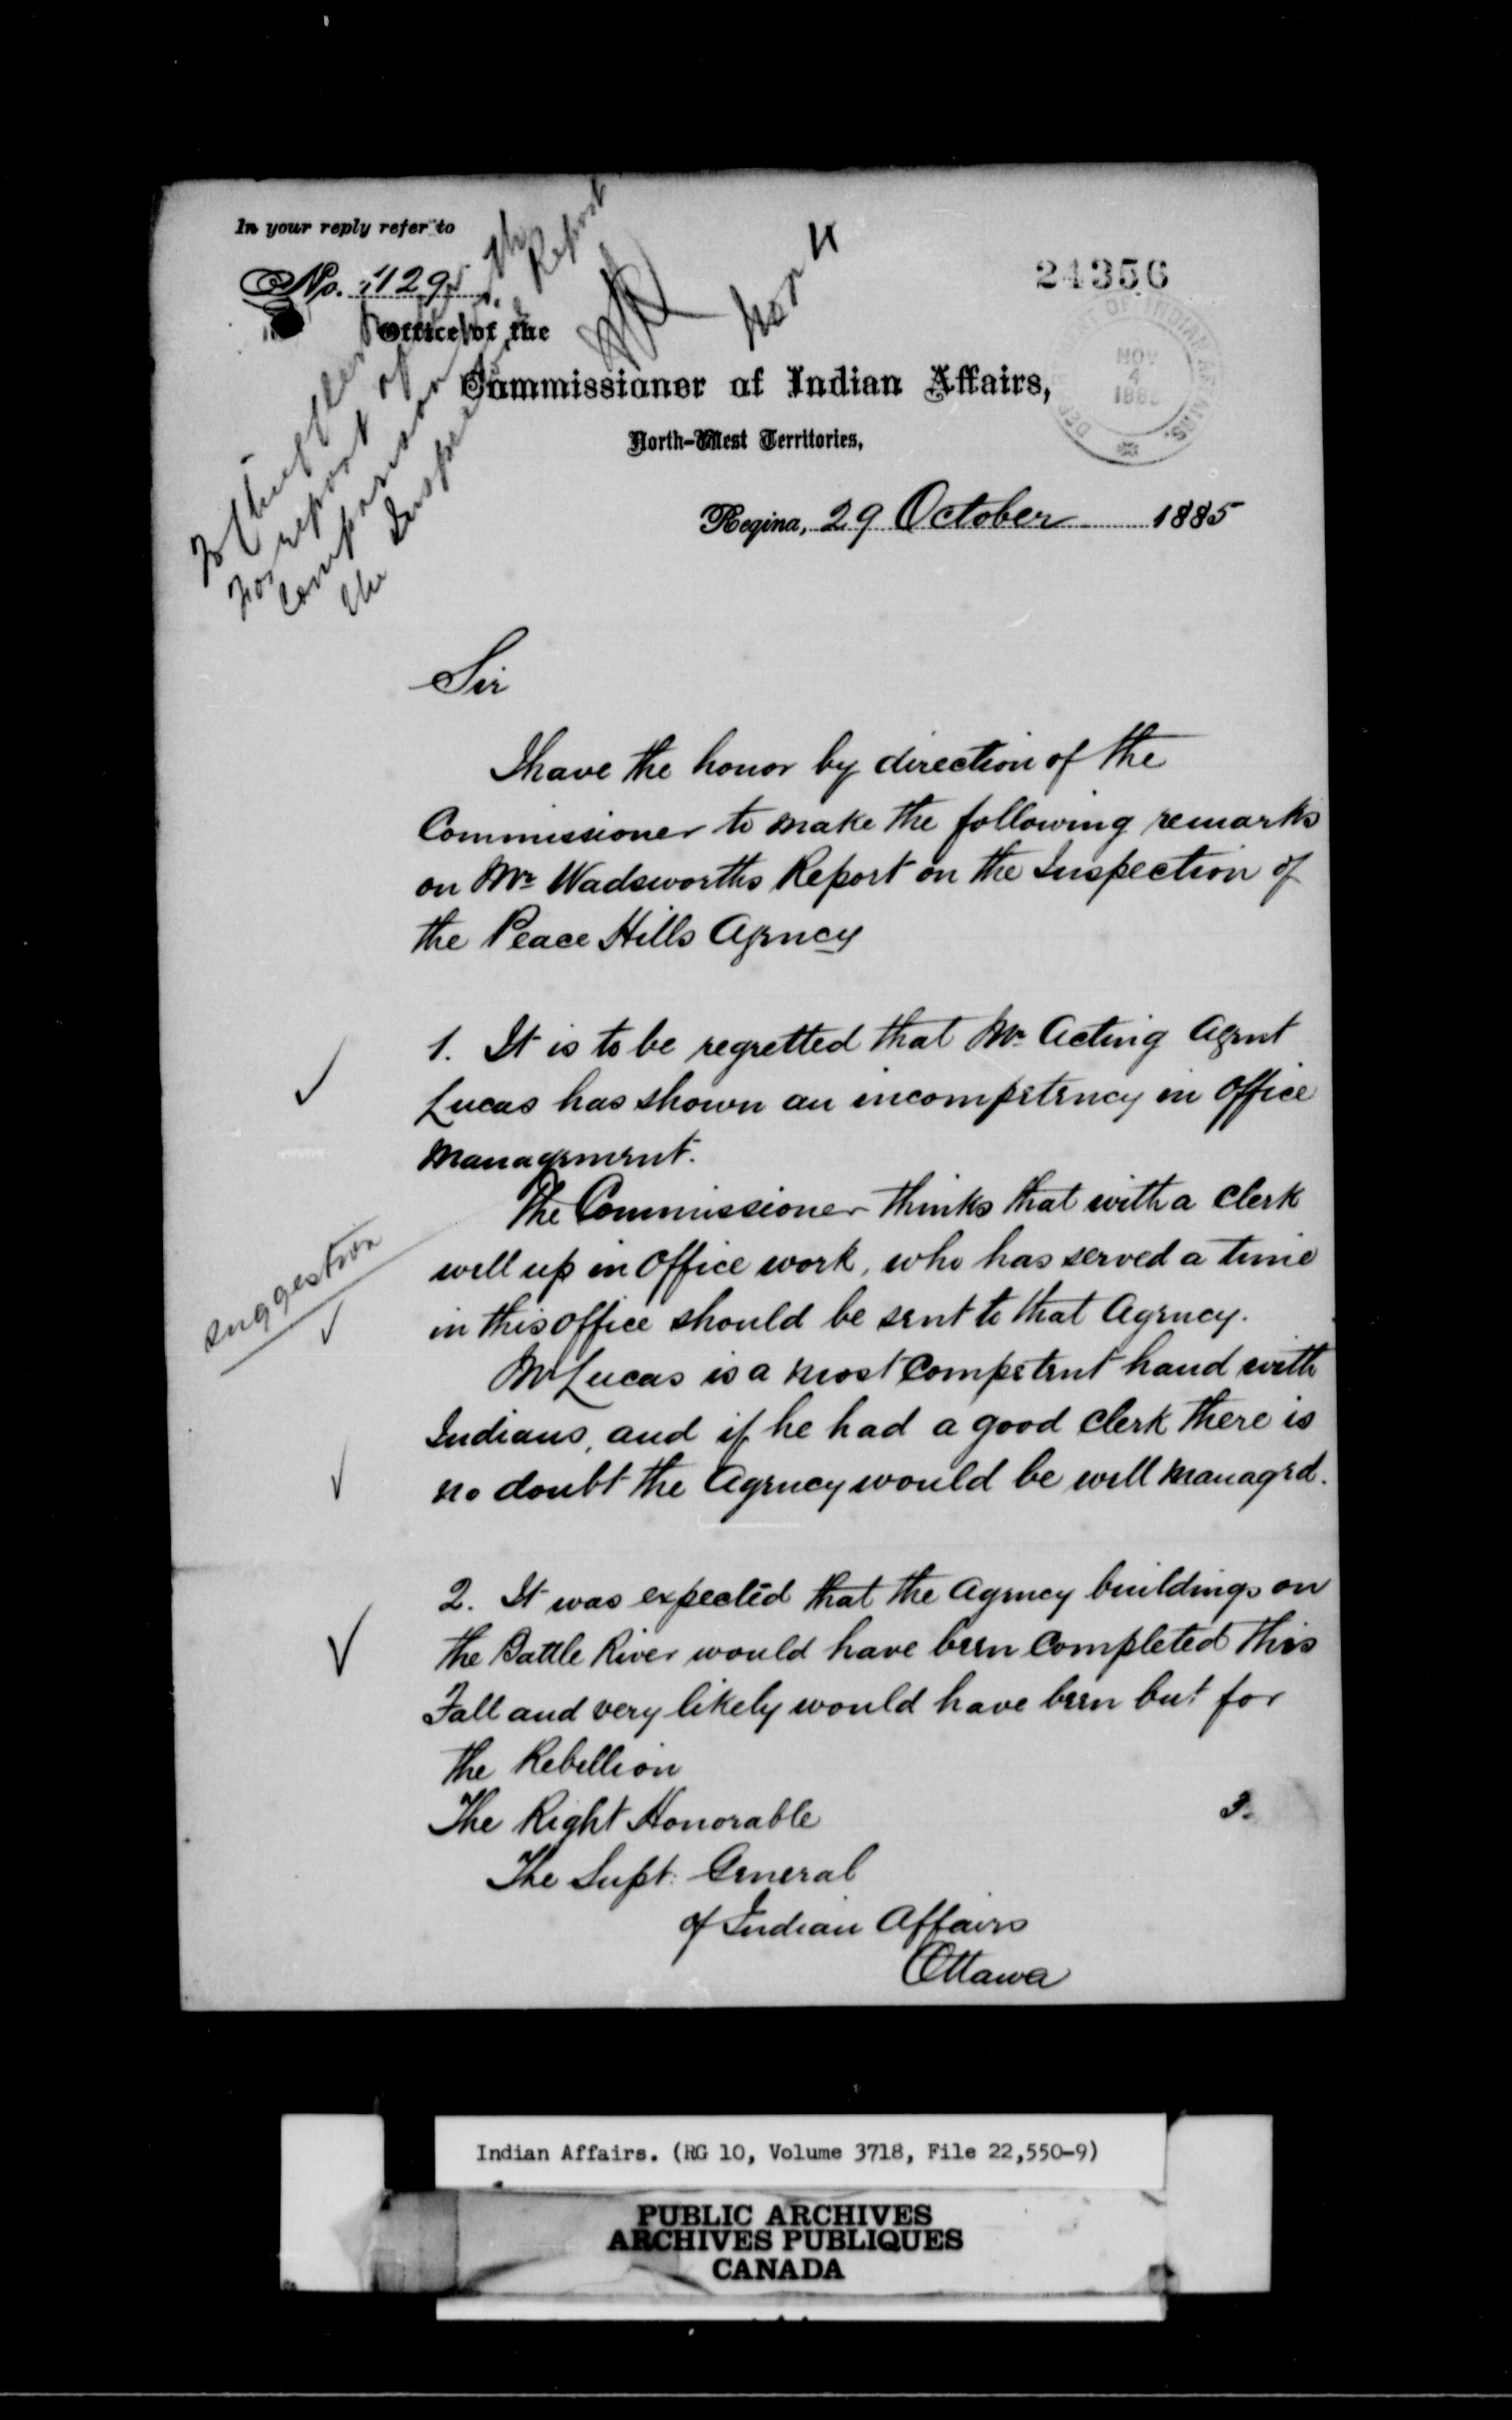 In your reply refer to
No. 1129
Office of the
Commissioner of Indian Affairs,
North-West Territories,
24356
DEPARTMENT OF INDIAN AFFAIRS.
NOV
4
1885
Regina, 29 October 1885
for report
comparison
the Inspec
Report
Nov 4
Sir
I have the honor by direction of the
Commissioner to make the following remarks
on Mr Wadsworths Report on the Inspection of
the Peace Hills Agency
1. It is to be regretted that Mr Acting Agent
Lucas has shown an incompetency in office
management.
The Commissioner thinks that with a clerk
well up in office work, who has served a time
in this office should be sent to that Agency.
suggestion
Mr Lucas is a most competent hand with
Indians, and if he had a good clerk there is
no doubt the Agency would be well managed.
2. It was expected that the Agency buildings on
the Battle River would have been completed this
Fall and very likely would have been but for
the Rebellion
3.
The Right Honorable
The Supt. General
of Indian Affairs
Ottawa
Indian Affairs. (RG 10, Volume 3718, File 22,550-9)
PUBLIC ARCHIVES
ARCHIVES PUBLIQUES
CANADA